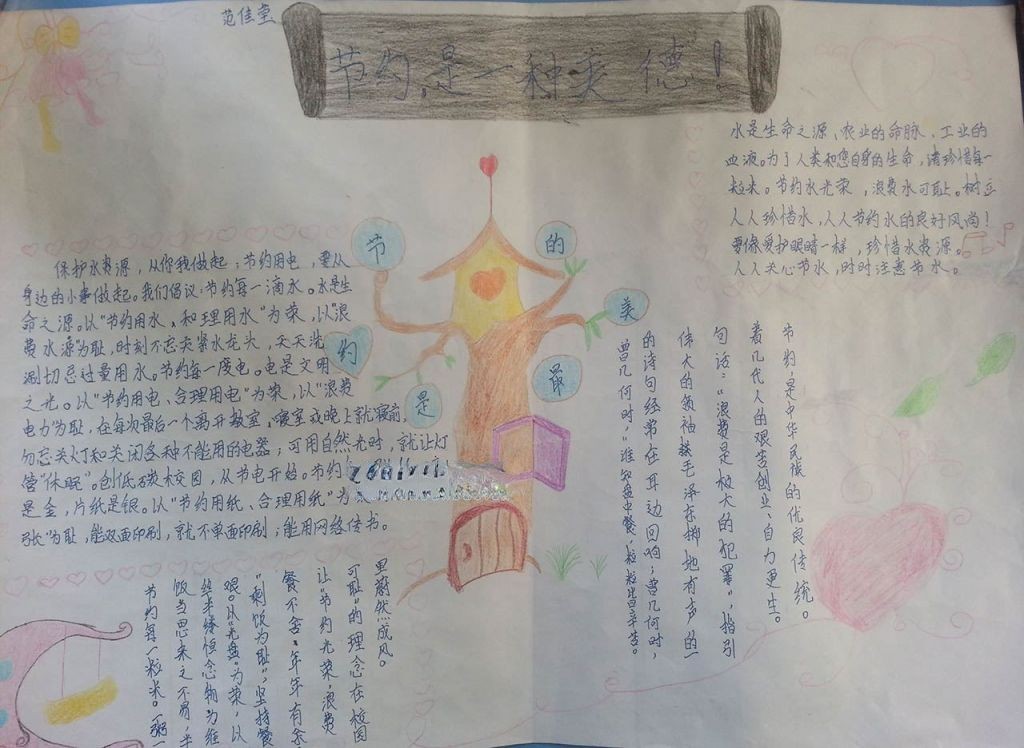 范佳莹
节约是一种美德！
水是生命之源、农业的命脉、工业的
血液。为了人类和您自身的生命，请珍惜每一
粒米。节约水光荣，浪费水可耻。树立
人人珍惜水，人人节约水的良好风尚！
要像爱护眼睛一样，珍惜水资源。
人人关心节水，时时注意节水。
节
约
是
最
美
的
保护水资源，从你我做起；节约用电，要从
身边的小事做起。我们倡议：节约每一滴水。水是生
命之源。以“节约用水、和理用水”为荣，以“浪
费水源”为耻，时刻不忘关紧水龙头，天天洗
涮切忌过量用水。节约每一度电。电是文明
之光。以“节约用电、合理用电”为荣，以“浪费
电力”为耻，在每次最后一个离开教室、寝室或晚上就寝前，
勿忘关灯和关闭各种不能用的电器；可用自然光时，就让灯
管“休眠”。创低碳校园，从节电开始。节约
是金，片纸是银。以“节约用纸、合理用纸”为
张”为耻，能双面印刷，就不单面印刷；能用网络传书。
节约，是中华民族的优良传统。
着几代人的艰苦创业、自力更生。
句话：“浪费是极大的犯罪”，指引
伟大的领袖 毛泽东掷地有声的一
的诗句经常在耳边回响；曾几何时，
曾几何时，“谁知盘中餐，粒粒皆辛苦。
节约每一粒米。“粥一
饭当思来之不易，半
丝半缕恒念物力维
艰。以“光盘”为荣，以
“剩饭为耻”，坚持餐
餐不舍、年年有余
让“节约光荣，浪费
可耻”的理念在校园
里蔚然成风。